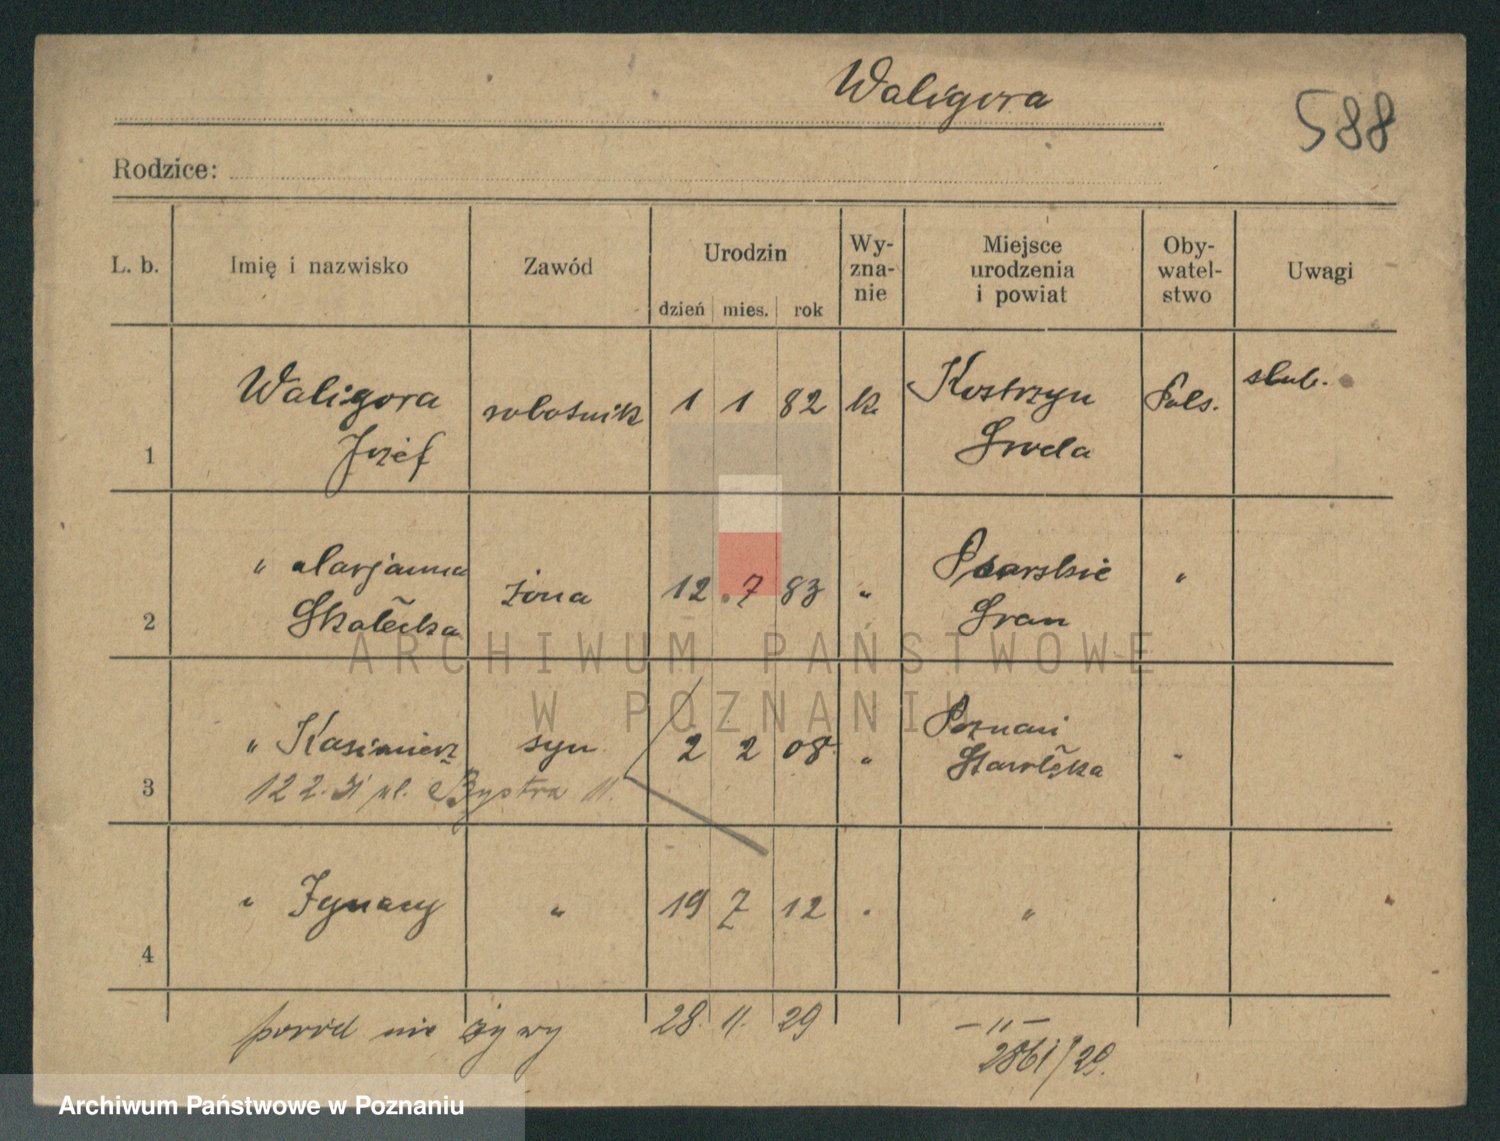 Waligora
588
Rodzice:
L. b. Imię i nazwisko Zawód Urodzin dzień mies. rok Wy-zna-nie Miejsce urodzenia i powiat Oby-watel-stwo Uwagi
1 Waligora Józef robotnik 1 1 82 k. Kostrzyn Sroda Pols. slub.
2 " Marjanna żona 12 . 7 83 " Psarskie Srem "
3 " Kasimierz syn 2 2 08 " Poznań "
12 2. 31 ul. Bystra 11.
4 " Ignacy " 19 7 12 " "
poród nie żywy 28. 11. 29 — " —
2861/29.
ARCHIWUM PAŃSTWOWE
W POZNANIU
Archiwum Państwowe w Poznaniu